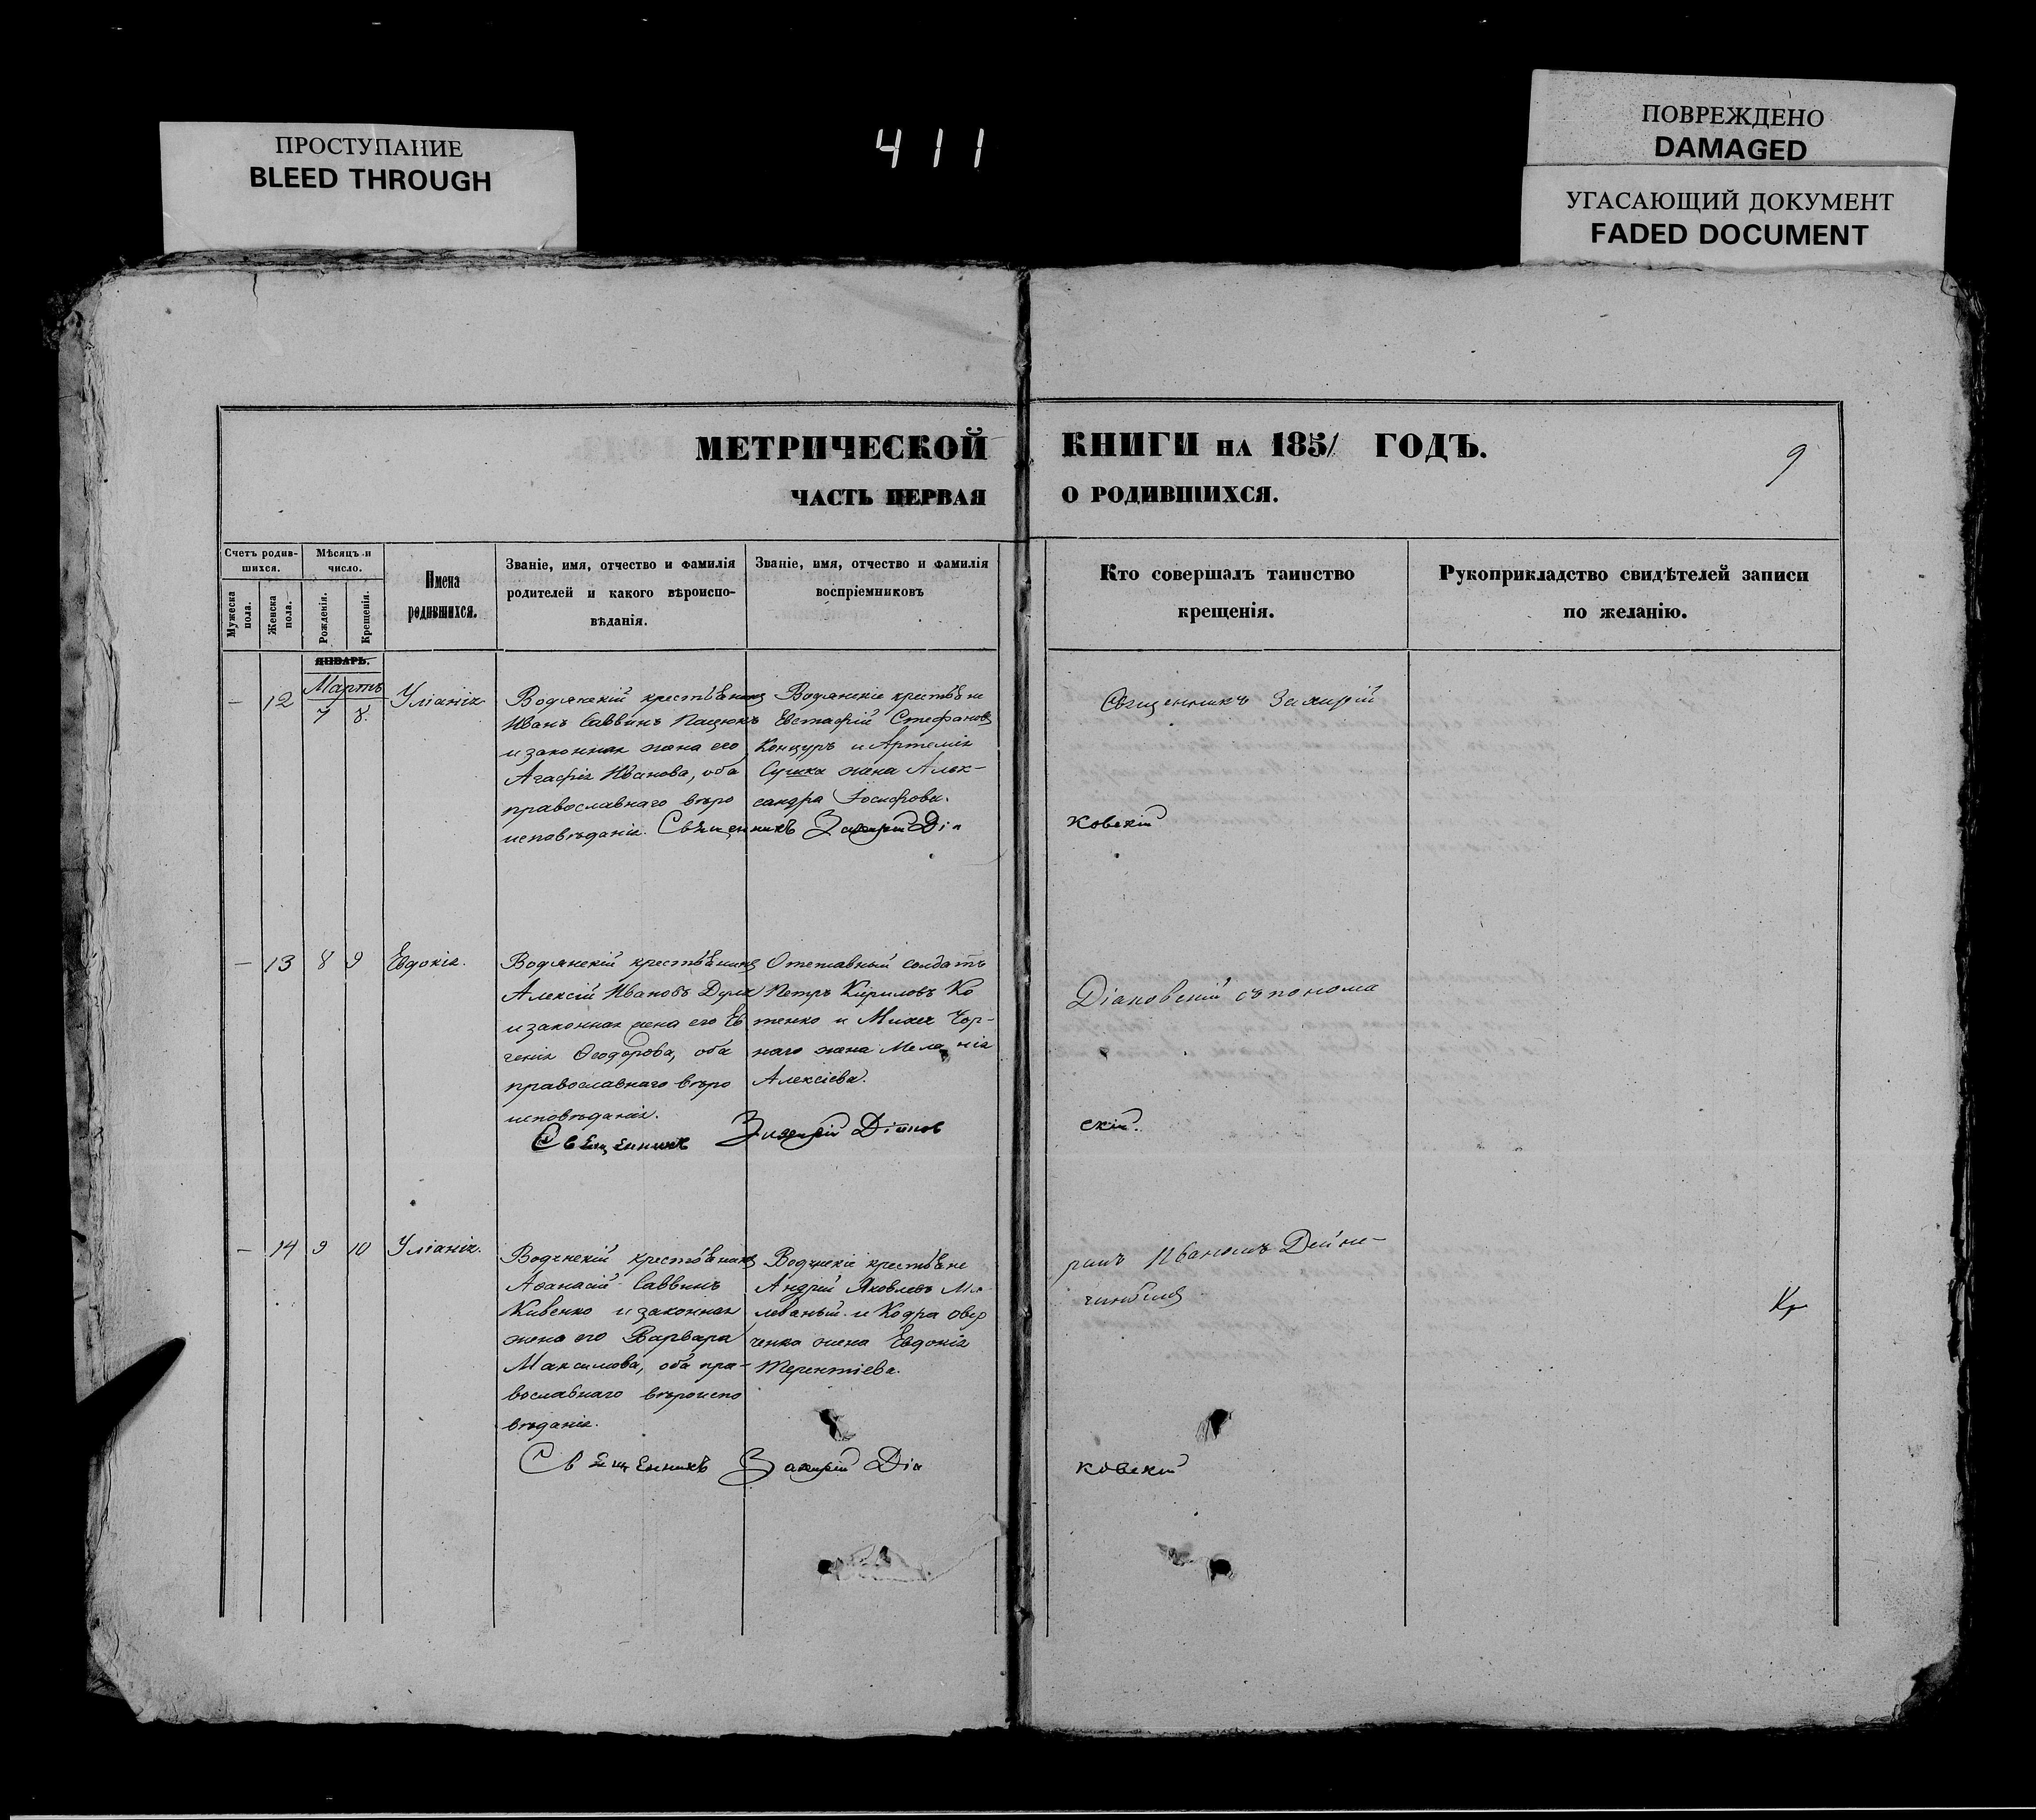 ПРОСТУПАНИЕ
BLEED THROUGH
411
ПОВРЕЖДЕНО
DAMAGED
УГАСАЮЩИЙ ДОКУМЕНТ
FADED DOCUMENT
МЕТРИЧЕСКОЙ КНИГИ НА 1851 ГОДЪ.
9
ЧАСТЬ ПЕРВАЯ О РОДИВШИХСЯ.
Счетъ родив-
шихся.
Мужеска пола.
Женска пола.
Мѣсяцъ и
число.
Рожденія.
Крещенія.
Имена
родившихся.
Званіе, имя, отчество и фамилія
родителей и какого вѣроиспо-
вѣданія.
Званіе, имя, отчество и фамилія
воспріемниковъ
Кто совершалъ таинство
крещенія.
Рукоприкладство свидѣтелей записи
по желанію.
ЯНВАРЬ.
Мартъ
— 12 7 8. Уліанія
Водянскій крестьянинъ
Иванъ Саввинъ Пацюкъ
и законная жена его
Агафія Иванова, оба
православнаго вѣро
исповѣданія.
Водянскіе крестьяне
Евстафій Стефановъ
Концуръ и Артемія
Сушка жена Алек-
сандра Іосифова.
Священникъ Захарій Діа
ковскій
Священникъ Захарій
— 13 8 9 Евдокія.
Водянскій крестьянинъ
Алексій Ивановъ Дула
и законная жена его Ев
генія Ѳеодорова, оба
православнаго вѣро
исповѣданія.
Отставный солдатъ
Петръ Кириловъ Ко
тенко и Михея Чор-
наго жена Меланія
Алексіева.
Священникъ Захарій Діаков
скій.
Діаковскій съ понома
— 14 9 10 Уліанія.
Водянскій крестьянинъ
Аѳанасій Саввинъ
Кивенко и законная
жена его Варвара
Максимова, оба пра-
вославнаго вѣроиспо
вѣданія.
Водянскіе крестьяне
Андрій Яковлевъ Ма
леваный и Кодра Овер
ченка жена Евдокія
Терентіева.
Священникъ Захарій Діа
ковскій
ремъ Иваномъ Дейне-